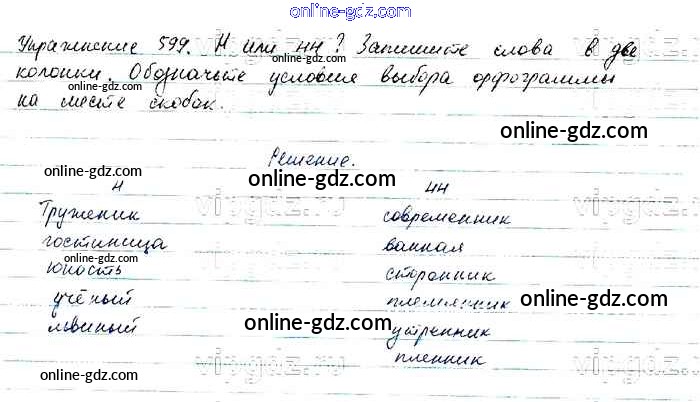 online-gdz.com
Упражнение 599. Н или нн? Запишите слова в две
колонки. Обозначьте условия выбора орфограммы
на месте скобок.
online-gdz.com
online-gdz.com
online-gdz.com
Решение.
online-gdz.com
online-gdz.com
н нн
Труженик современник
гостиница ванная
online-gdz.com
юность сторонник
учёный племянник
online-gdz.com
львиный утренник
online-gdz.com
пленник
online-gdz.com
online-gdz.com
vipgdz.ru